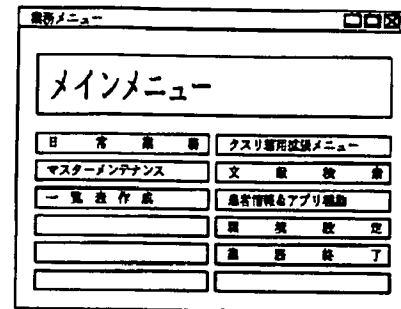 業務メニュー
メインメニュー
日常業務
マスターメンテナンス
一覧表作成
クスリ専用拡張メニュー
文献検索
患者情報&アプリ起動
環境設定
業務終了